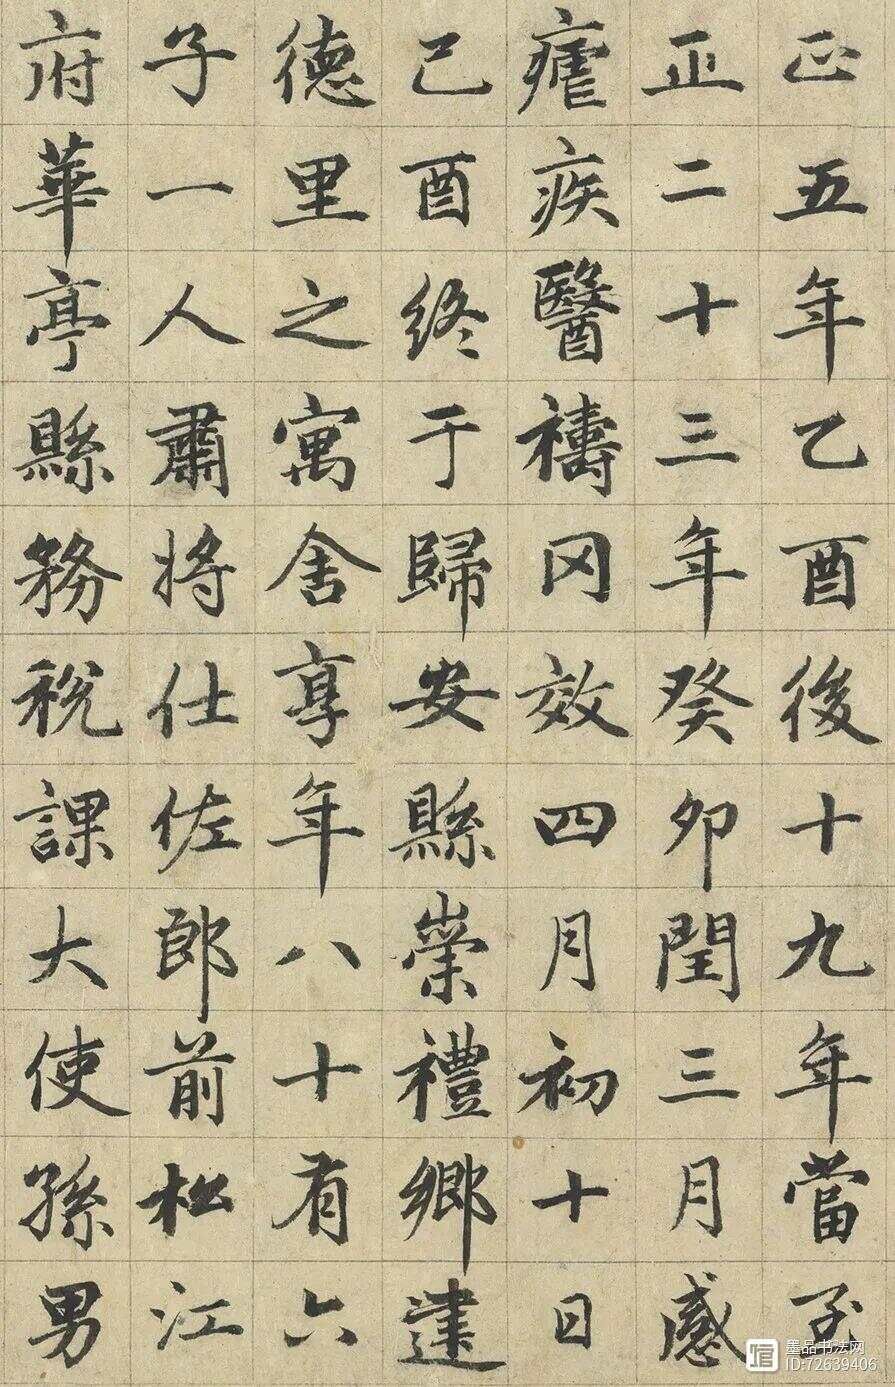 正五年乙酉後十九年當至
正二十三年癸卯閏三月感
瘧疾醫禱罔效四月初十日
己酉終于歸安縣崇禮鄉建
德里之寓舍享年八十有六
子一人肅將仕佐郎前松江
府華亭縣務稅課大使孫男
墨品书法网
ID:72639406